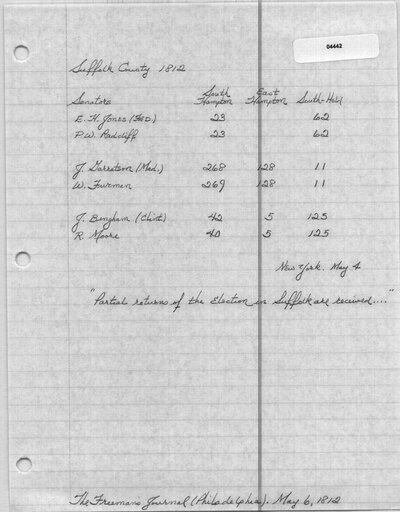 04442
Suffolk County 1812
Senators South Hampton East Hampton South-Hold
E. H. Jones (FED.) 23 62
P.W. Radcliff 23 62
J. Garretson (Mad.) 268 128 11
W. Furman 269 128 11
J. Bingham (Clint) 42 5 125
R. Moore 40 5 125
New York. May 4
"Partial returns of the Election in Suffolk are received...."
The Freeman's Journal (Philadelphia). May 6, 1812